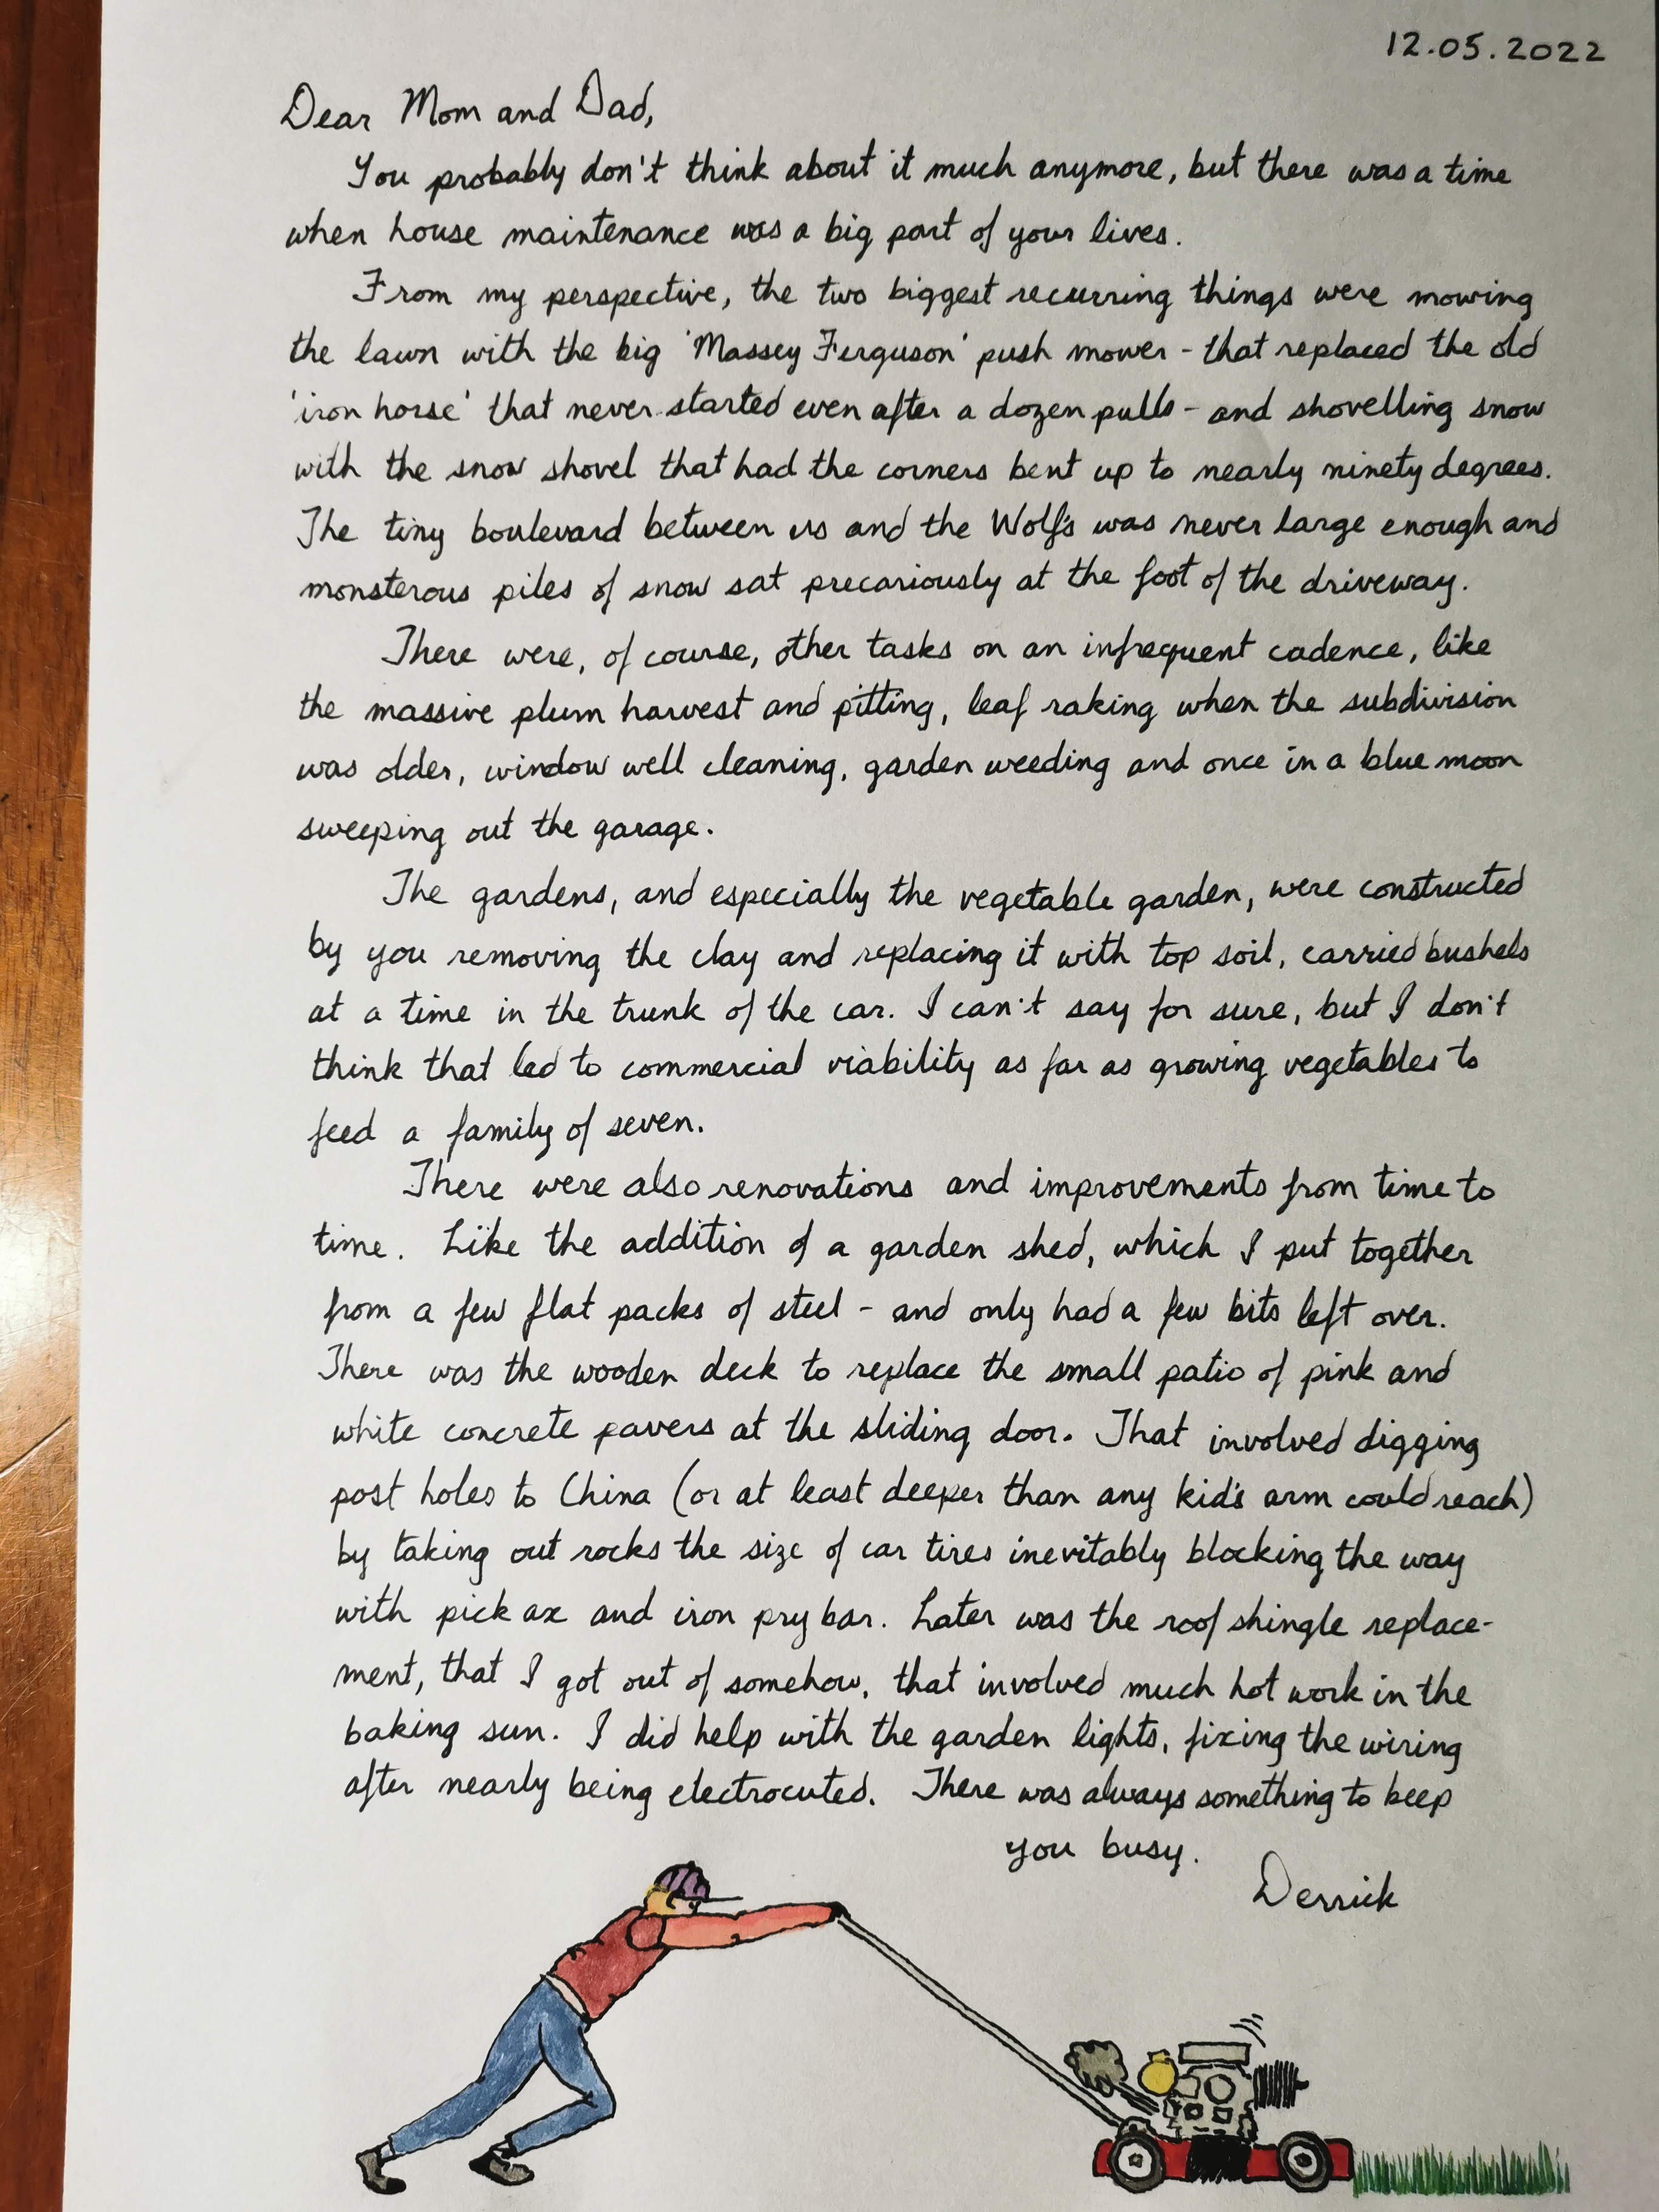 12.05.2022
Dear Mom and Dad,
You probably don't think about it much anymore, but there was a time
when house maintenance was a big part of your lives.
From my perspective, the two biggest recurring things were mowing
the lawn with the big 'Massey Ferguson' push mower - that replaced the old
'iron horse' that never started even after a dozen pulls - and shovelling snow
with the snow shovel that had the corners bent up to nearly ninety degrees.
The tiny boulevard between us and the Wolf's was never large enough and
monsterous piles of snow sat precariously at the foot of the driveway.
There were, of course, other tasks on an infrequent cadence, like
the massive plum harvest and pitting, leaf raking when the subdivision
was older, window well cleaning, garden weeding and once in a blue moon
sweeping out the garage.
The gardens, and especially the vegetable garden, were constructed
by you removing the clay and replacing it with top soil, carried bushels
at a time in the trunk of the car. I can't say for sure, but I don't
think that led to commercial viability as far as growing vegetables to
feed a family of seven.
There were also renovations and improvements from time to
time. Like the addition of a garden shed, which I put together
from a few flat packs of steel - and only had a few bits left over.
There was the wooden deck to replace the small patio of pink and
white concrete pavers at the sliding door. That involved digging
post holes to China (or at least deeper than any kid's arm could reach)
by taking out rocks the size of car tires inevitably blocking the way
with pick ax and iron pry bar. Later was the roof shingle replace-
ment, that I got out of somehow, that involved much hot work in the
baking sun. I did help with the garden lights, fixing the wiring
after nearly being electrocuted. There was always something to keep
you busy.
Derrick